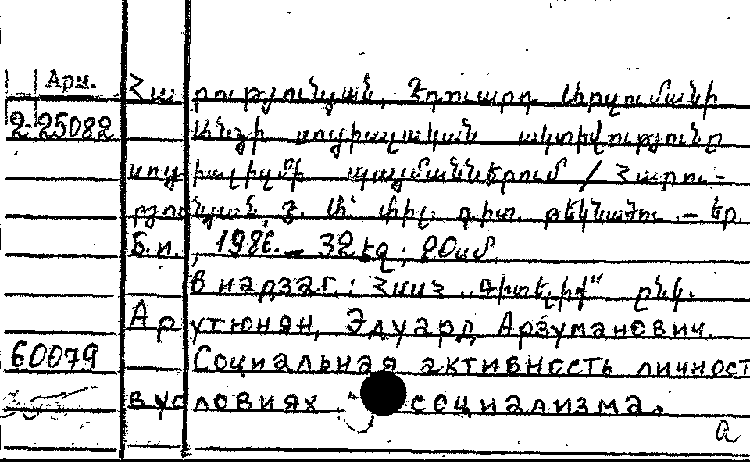 Арм.
Հարությունյան, Էդուարդ Արզումանի
2-25082 Անձի սոցիալական ակտիվությունը
սոցիալիզմի պայմաններում / Հարու-
թյունյան, Է. Ա. փիլ. գիտ. թեկնածու. — Եր.
Б.и., 1986. — 32 էջ; 20սմ.
В надзаг.: ՀՍՍՀ "Գիտելիք" ընկ.
Арутюнян, Эдуард Арзуманович.
60079 Социальная активность личност
в условиях социализма.
а